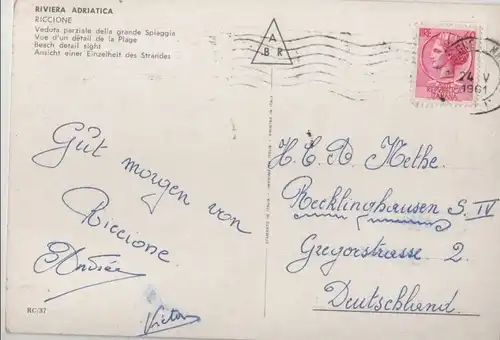 RIVIERA ADRIATICA
RICCIONE
Veduta parziale della grande Spiaggia
Vue d'un détail de la Plage
Beach detail sight
Ansicht einer Einzelheit des Strandes
A
B R
24 V
1961
Gŭt morgen von
Riccione.
Victor
H. C. A Methe.
Recklinghausen S. IV
Gregorstrasse 2.
Deutschland.
RC/37